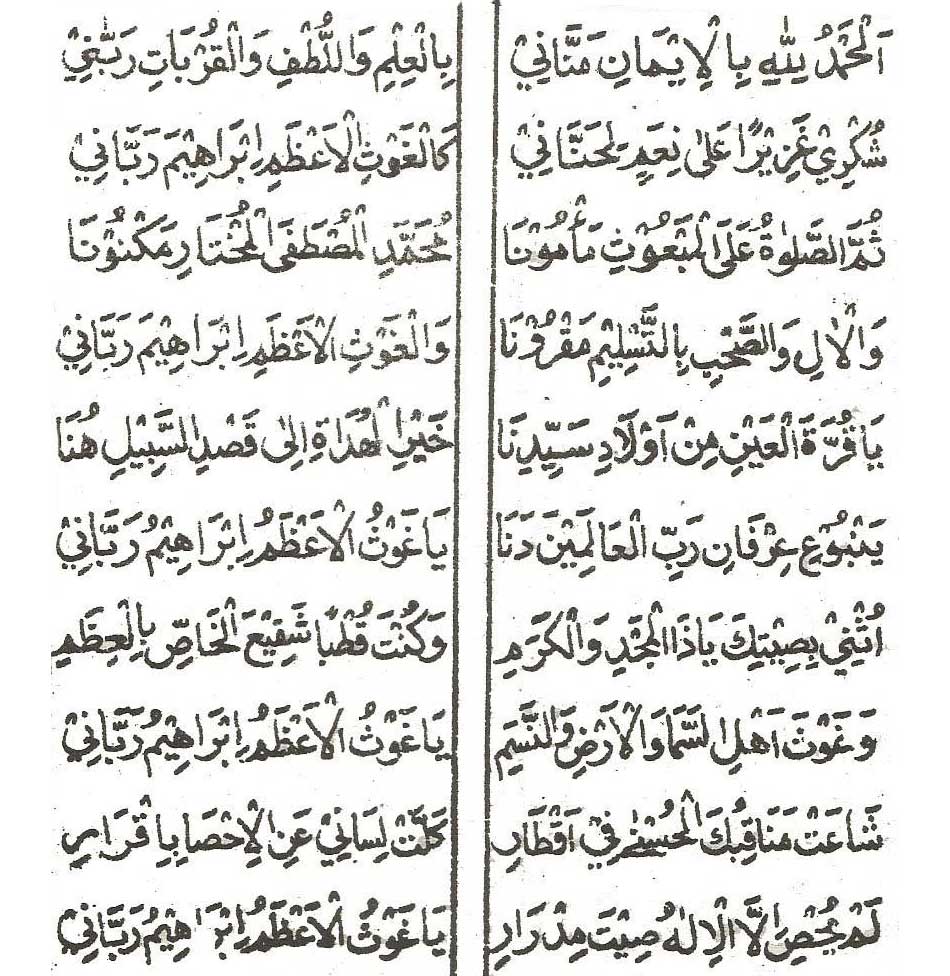 اَلْحَمْدُ لِلّٰهِ بِالْاِيْمَانِ مَنَّانِيْ بِالْعِلْمِ وَاللُّطْفِ وَالْقُرْبَاتِ رَبَّنِيْ
شُكْرِيْ غَزِيْرًا عَلٰى نِعَمٍ كَالْغَوْثِ الْاَعْظَمِ اِبْرَاهِيْمَ رَبَّانِيْ
ثُمَّ الصَّلٰوةُ عَلَى الْمَبْعُوْثِ مَأْمُوْنَا مُحَمَّدِ الْمُصْطَفَى الْمُخْتَارِ مَكْنُوْنَا
وَالْاٰلِ وَالصَّحْبِ بِالتَّسْلِيْمِ مَقْرُوْنَا وَالْغَوْثِ الْاَعْظَمِ اِبْرَاهِيْمَ رَبَّانِيْ
يَا قُرَّةَ الْعَيْنِ مِنْ اَوْلَادِ سَيِّدِنَا خَيْرِ الْهُدَاةِ اِلٰى قَصْدِ السَّبِيْلِ هُنَا
يَنْبُوْعِ عِرْفَانِ رَبِّ الْعَالَمِيْنَ دَنَا يَا غَوْثُ الْاَعْظَمُ اِبْرَاهِيْمُ رَبَّانِيْ
اُثْنِيْ بِصِيْتِكَ يَا ذَا الْمَجْدِ وَالْكَرَمِ وَكُنْتَ قُطْبًا شَفِيْعَ الْخَاصِّ بِالْعِظَمِ
وَغَوْثَ اَهْلِ السَّمَا وَالْاَرْضِ وَالنَّسَمِ يَا غَوْثُ الْاَعْظَمُ اِبْرَاهِيْمُ رَبَّانِيْ
شَاعَتْ مَنَاقِبُكَ الْحُسْنٰى فِيْ اَقْطَارِ كَلَّتْ لِسَانِيْ عَنِ الْاِحْصَا بِاِقْرَارِ
لَمْ يُحْصِ اِلَّا الْاِلٰهُ صِيْتَ مِدْرَارِ يَا غَوْثُ الْاَعْظَمُ اِبْرَاهِيْمُ رَبَّانِيْ